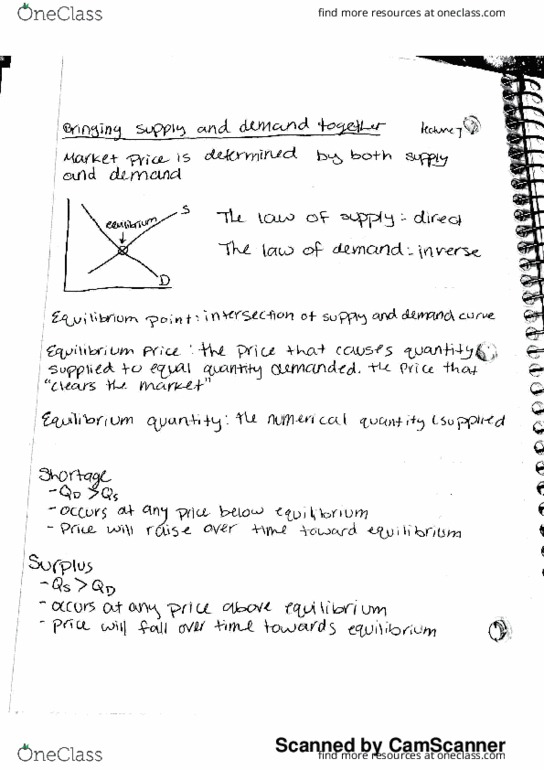 OneClass
find more resources at oneclass.com
Bringing supply and demand together lecture 7
Market Price is determined by both supply
and demand
equilibrium
S
D
The law of supply: direct
The law of demand: inverse
Equilibrium point: intersection of supply and demand curve
Equilibrium Price: the price that causes quantity
supplied to equal quantity demanded. the price that
"clears the market"
Equilibrium quantity: the numerical quantity (supplied
Shortage
- QD > QS
- occurs at any price below equilibrium
- Price will raise over time toward equilibrium
Surplus
- QS > QD
- occurs at any price above equilibrium
- price will fall over time towards equilibrium
Scanned by CamScanner
OneClass
find more resources at oneclass.com